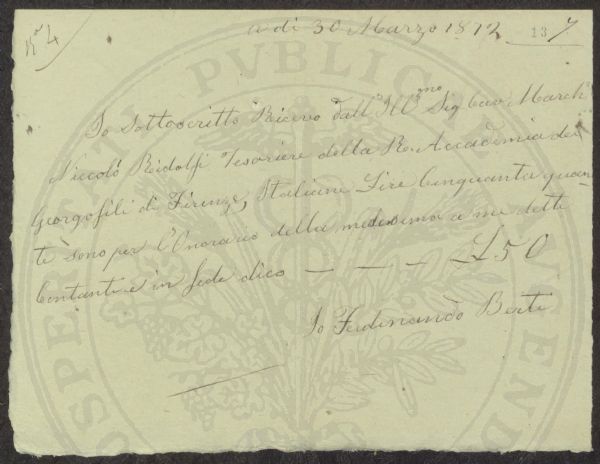 N° 4
a dì 30 Marzo 1872
13 7
Io Sottoscritto Ricevo dall' Ill.mo Sig. Cav. March.
Niccolò Ridolfi Tesoriere della R. Accademia dei
Georgofili di Firenze, Italiane Lire Cinquanta quan
te sono per l'Onorario della medesima a me dette
Contante in fede dico — — — £ 50
Io Ferdinando Berti
PROSPERITATI PVBLICAE AVGENDAE